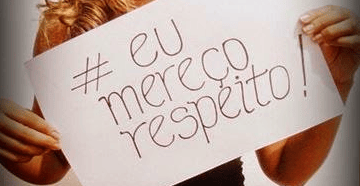 # eu
mereço
respeito!